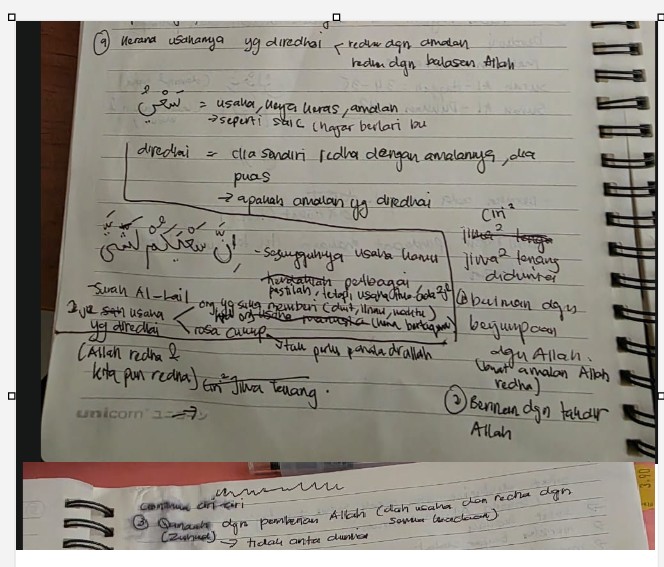 ⑨ Kerana usahanya yg diredhai < redha dgn amalan
redha dgn balasan Allah
سَعْيٌ = usaha, kerja keras, amalan
→ seperti saie (hajar berlari
diredhai = dia sendiri redha dengan amalannya, dia
puas
→ apakah amalan yg diredhai
إِنَّ سَعْيَكُمْ لَشَتَّىٰ - sesungguhnya usaha kamu
pelbagai
pastilah, tetapi usaha
Surah Al-Lail
usaha
yg diredhai
org yg suka memberi (duit, ilmu, waktu)
rasa cukup → tak perlu
(Allah redha &
kita pun redha)
Ciri² Jiwa Tenang.
Ciri²
jiwa² tenang
didunia
① beriman dgn
berjumpaan
dgn Allah.
(buat amalan Allah
redha)
② Beriman dgn takdir
Allah
unicorn
continue dri siri
③ Qanaah dgn pemberian Allah (dah usaha dan redha dgn
semua keadaan)
(Zuhud) → tidak cinta dunia
3.90